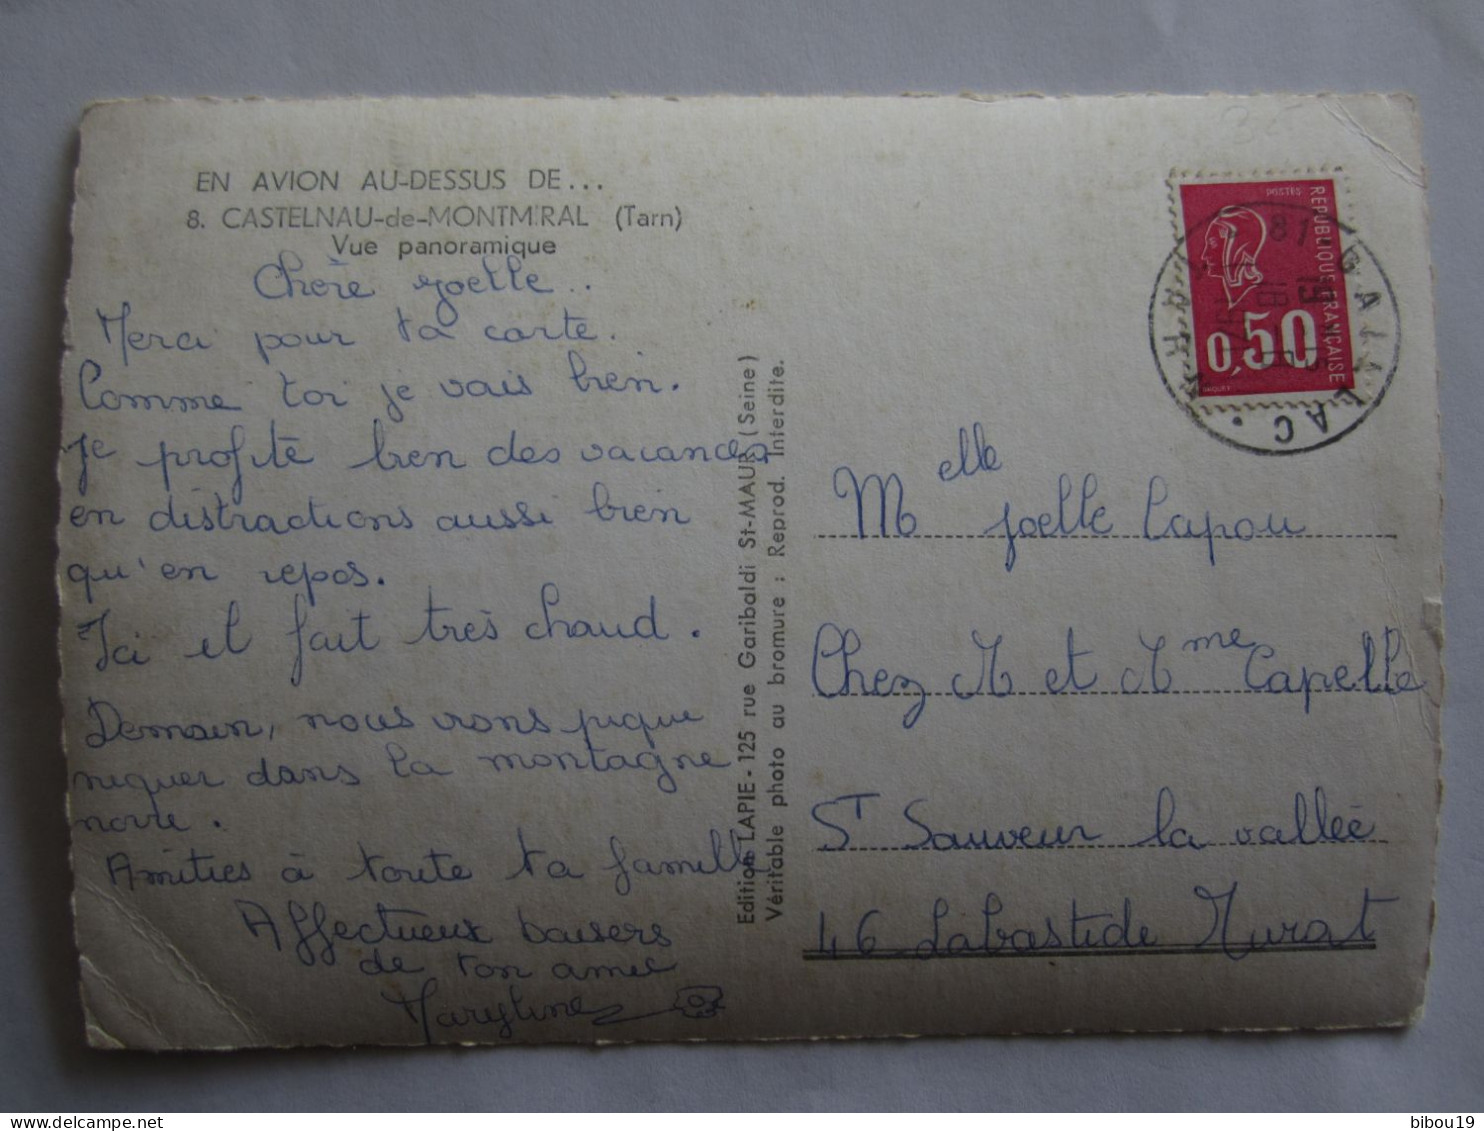 EN AVION AU-DESSUS DE...
8. CASTELNAU-de-MONTMIRAL (Tarn)
Vue panoramique
Chère Joelle..
Merci pour ta carte.
Comme toi je vais bien.
Je profite bien des vacances
en distractions aussi bien
qu'en repos.
Ici il fait très chaud.
Demain, nous irons pique
niquer dans la montagne
noire.
Amitiés à toute ta famille
Affectueux baisers
de ton amie
Maryline
Edition LAPIE - 125 rue Garibaldi St-MAUR (Seine)
Véritable photo au bromure : Reprod. Interdite.
POSTES
REPUBLIQUE FRANÇAISE
0,50
81 - GAILLAC
Melle Joelle Capou
Chez M et Mme Capelle
ST Sauveur la vallée
46 Labastide Murat
bibou19